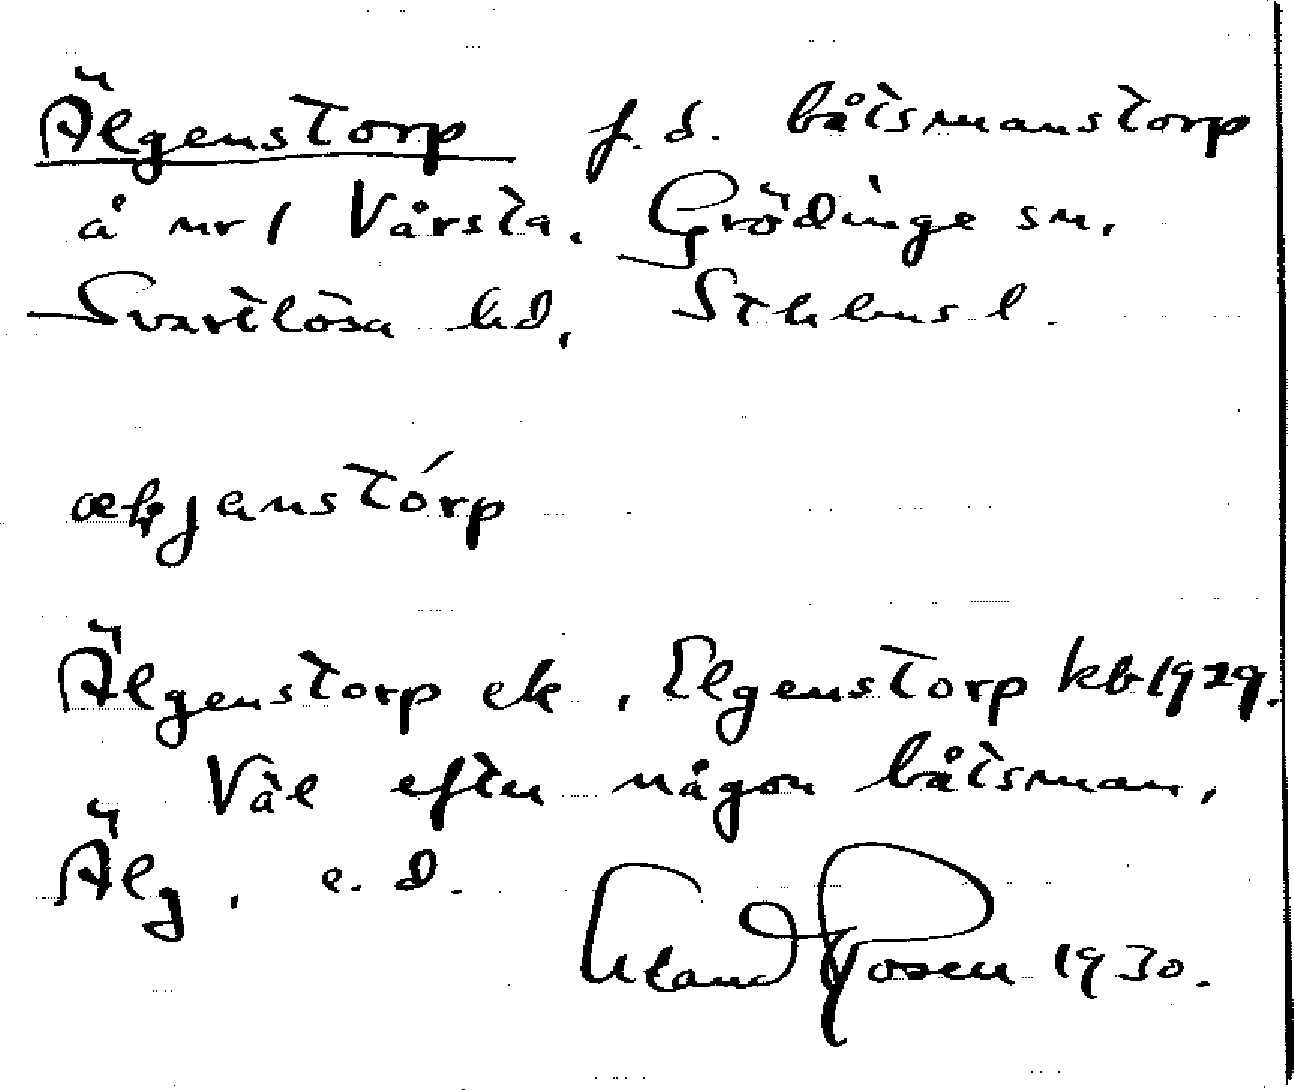 Älgenstorp f.d. båtsmanstorp
å nr 1 Vårsta. Grödinge sn,
Svartlösa hd, Sthlms l.
Älgenstorp ek, Elgenstorp kb 1929.
Väl efter någon båtsman,
Älg, e.d.
Rosen 1930.